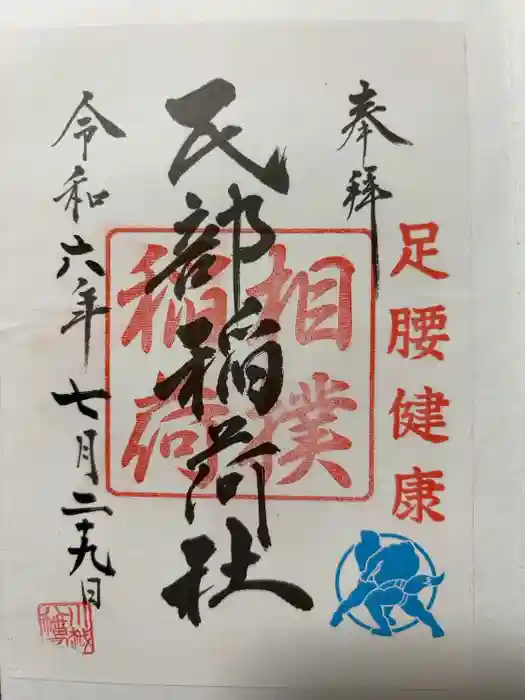 奉拝
足腰健康
民部稲荷社
相撲
稲荷
令和六年七月二十九日
川越